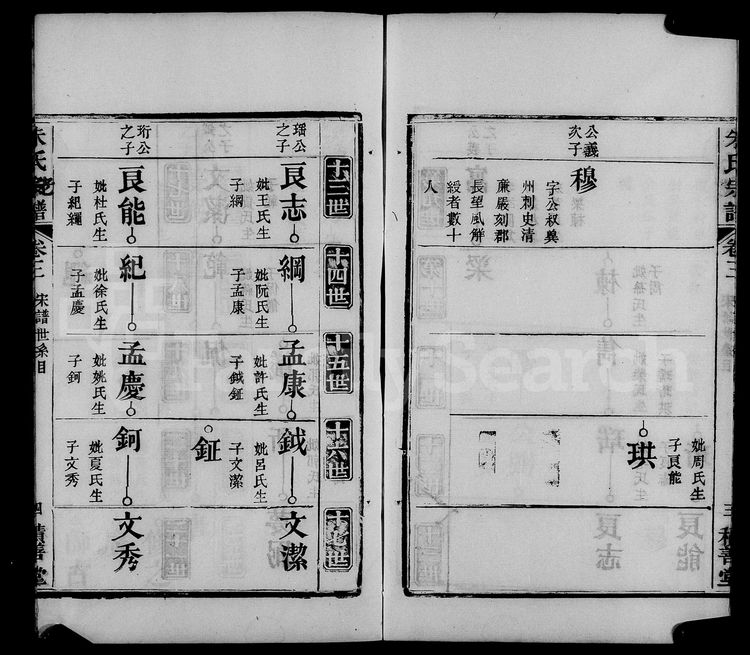 朱氏宗譜
卷三
宋譜世系目
三
積善堂
公義
次子
穆
字公叔冀
州刺史清
廉嚴刻郡
長望風解
綬者數十
人
珙
妣周氏生
子良能
十三世
十四世
十五世
十六世
十七世
璠公
之子
良志
妣王氏生
子綱
綱
妣阮氏生
子孟康
孟康
妣許氏生
子鉞鉦
鉞
妣呂氏生
子文潔
文潔
鉦
珩公
之子
良能
妣杜氏生
子紀繩
紀
妣徐氏生
子孟慶
孟慶
妣姚氏生
子鈳
鈳
妣夏氏生
子文秀
文秀
朱氏宗譜
卷三
宋譜世系目
四
積善堂
FamilySearch